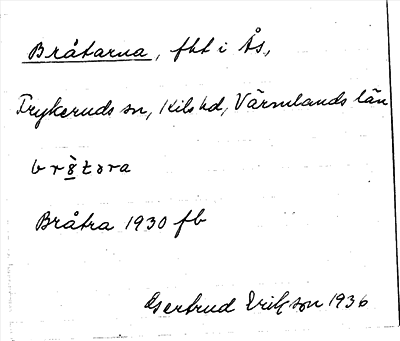 Bråtarna, fht i Ås,
Frykeruds sn, Kils hd, Värmlands län
Bråtra 1930 fb
Gertrud Erikson 1936